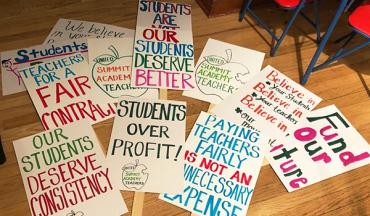 We believe
in your
STUDENTS
ARE
OUR
STUDENTS
DESERVE
BETTER
We Believe
in
Students
TEACHERS
FOR A
FAIR
CONTRACT
UNITED
SUMMIT
ACADEMY
TEACHERS
UNITED
SUMMIT
ACADEMY
TEACHERS
Believe in
your Students
Believe in
your teachers
Believe in
OUR
STUDENTS
DESERVE
CONSISTENCY
STUDENTS
OVER
PROFIT!
UNITED
SUMMIT
ACADEMY
TEACHERS
PAYING
TEACHERS
FAIRLY
IS NOT AN
UNNECESSARY
EXPENSE
Fund
Our
Future